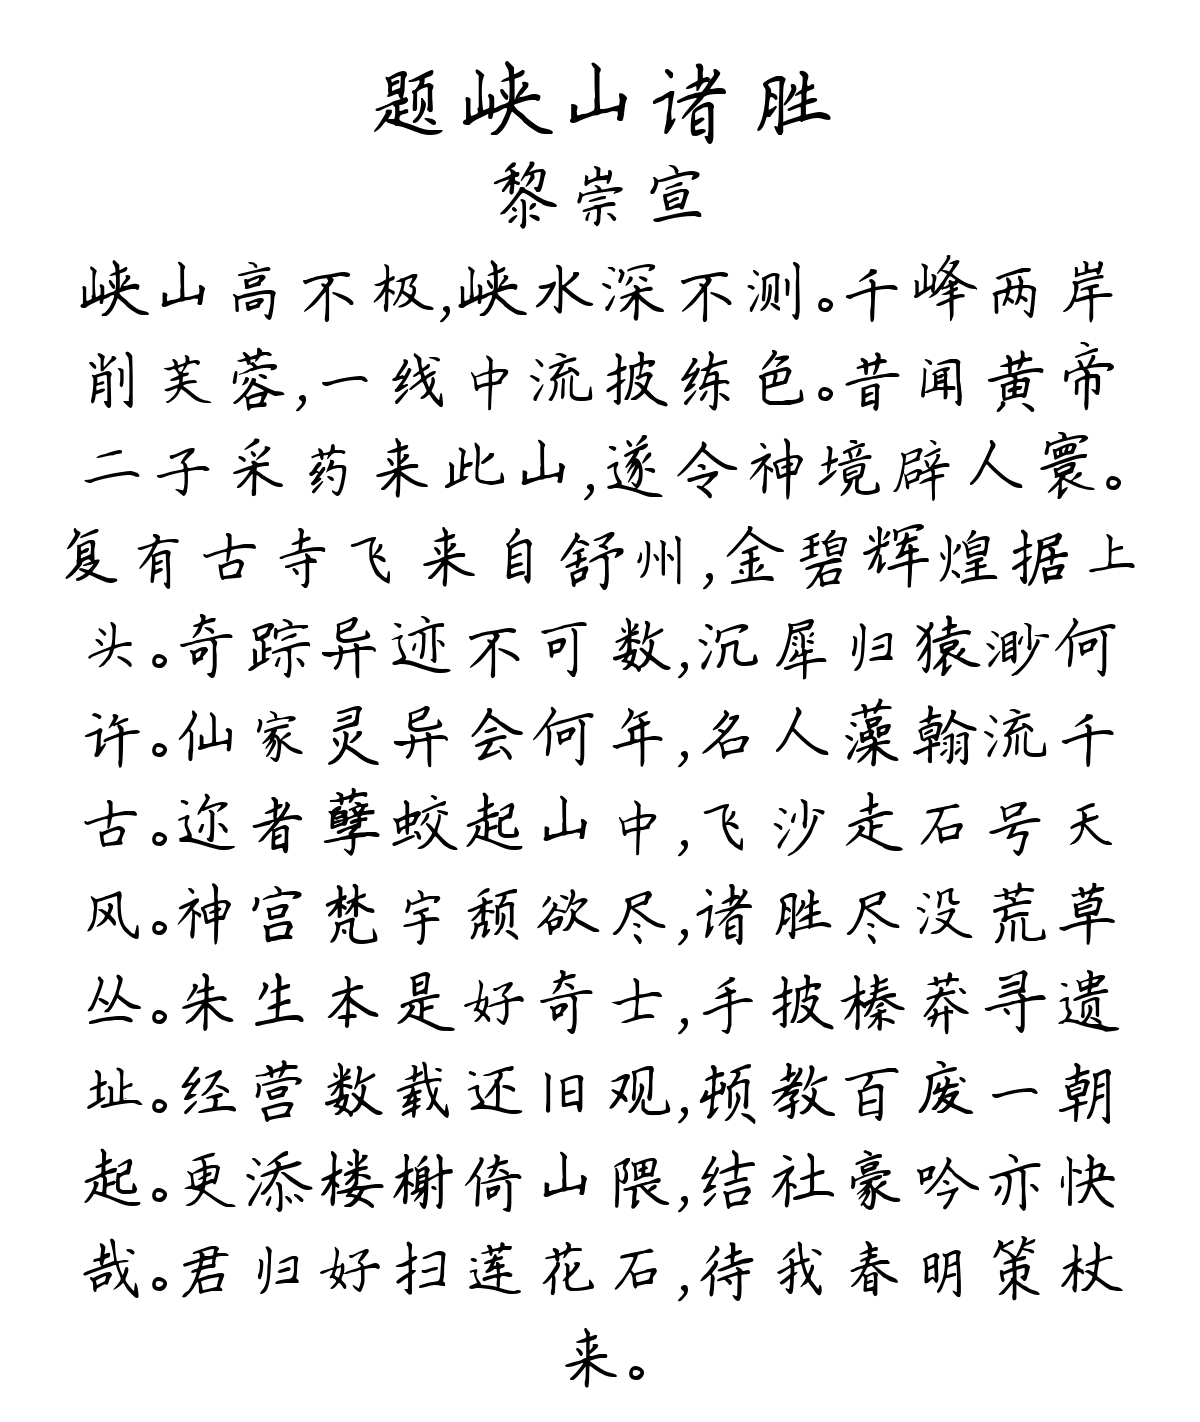 题峡山诸胜
黎崇宣
峡山高不极,峡水深不测。千峰两岸
削芙蓉,一线中流披练色。昔闻黄帝
二子采药来此山,遂令神境辟人寰。
复有古寺飞来自舒州,金碧辉煌据上
头。奇踪异迹不可数,沉犀归猿渺何
许。仙家灵异会何年,名人藻翰流千
古。迩者孽蛟起山中,飞沙走石号天
风。神宫梵宇颓欲尽,诸胜尽没荒草
丛。朱生本是好奇士,手披榛莽寻遗
址。经营数载还旧观,顿教百废一朝
起。更添楼榭倚山隈,结社豪吟亦快
哉。君归好扫莲花石,待我春明策杖
来。